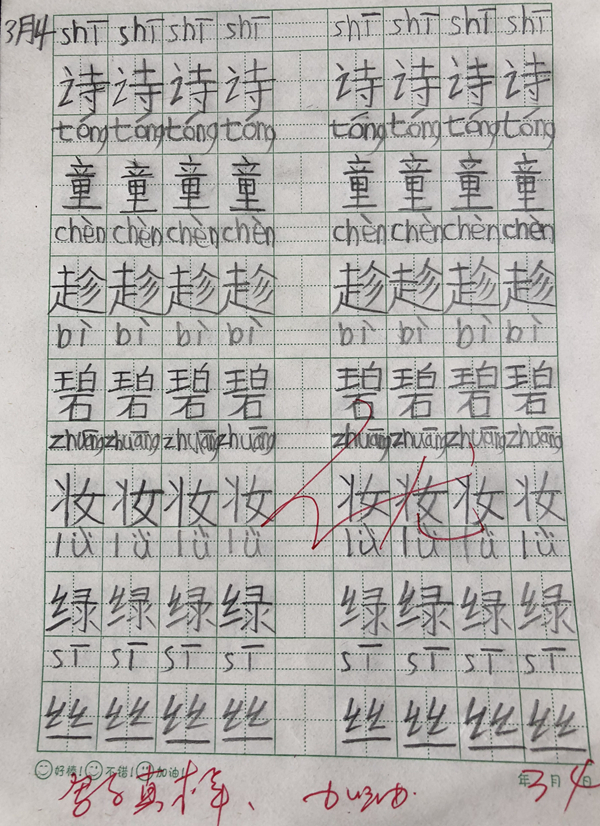 3月4 shī shī shī shī shī shī shī shī
诗 诗 诗 诗 诗 诗 诗 诗
tóng tóng tóng tóng tóng tóng tóng tóng
童 童 童 童 童 童 童 童
chèn chèn chèn chèn chèn chèn chèn chèn
趁 趁 趁 趁 趁 趁 趁 趁
bì bì bì bì bì bì bì bì
碧 碧 碧 碧 碧 碧 碧 碧
zhuāng zhuāng zhuāng zhuāng zhuāng zhuāng zhuāng zhuāng
妆 妆 妆 妆 妆 妆 妆 妆
lǜ lǜ lǜ lǜ lǜ lǜ lǜ lǜ
绿 绿 绿 绿 绿 绿 绿 绿
sī sī sī sī sī sī sī sī
丝 丝 丝 丝 丝 丝 丝 丝
好棒! 不错! 加油! 年3月4日
字真棒、加油